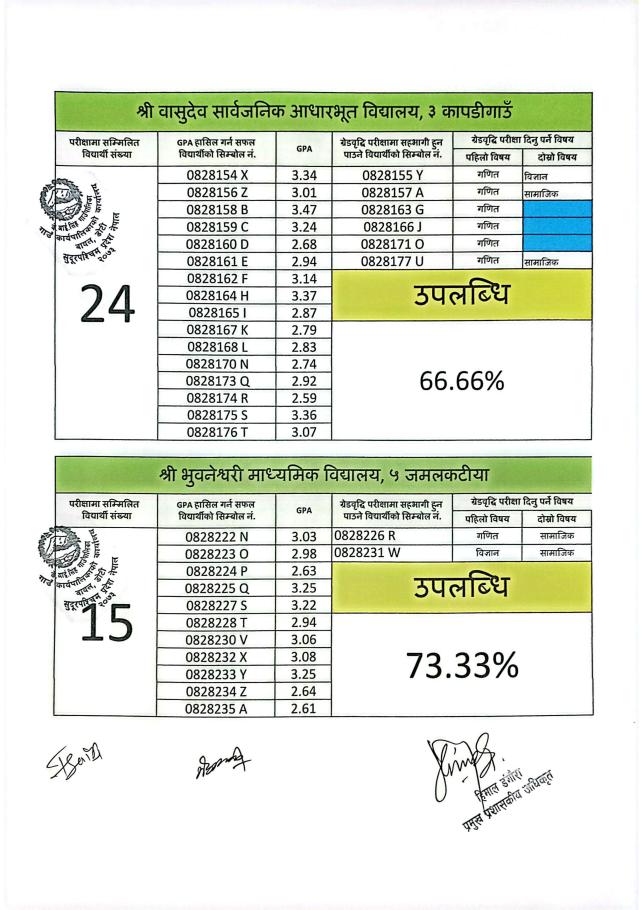 श्री वासुदेव सार्वजनिक आधारभूत विद्यालय, ३ कापडीगाउँ
परीक्षामा सम्मिलित विद्यार्थी संख्या
GPA हासिल गर्न सफल विद्यार्थीको सिम्बोल नं.
GPA
ग्रेडवृद्धि परीक्षामा सहभागी हुन पाउने विद्यार्थीको सिम्बोल नं.
ग्रेडवृद्धि परीक्षा दिनु पर्ने विषय
पहिलो विषय दोस्रो विषय
0828154 X 3.34 0828155 Y गणित विज्ञान
0828156 Z 3.01 0828157 A गणित सामाजिक
0828158 B 3.47 0828163 G गणित
0828159 C 3.24 0828166 J गणित
0828160 D 2.68 0828171 O गणित
0828161 E 2.94 0828177 U गणित सामाजिक
0828162 F 3.14
0828164 H 3.37
0828165 I 2.87
0828167 K 2.79
0828168 L 2.83
0828170 N 2.74
0828173 Q 2.92
0828174 R 2.59
0828175 S 3.36
0828176 T 3.07
24
उपलब्धि
66.66%
गाउँ कार्यपालिकाको कार्यालय
सुदूरपश्चिम प्रदेश नेपाल
२०७३
श्री भुवनेश्वरी माध्यमिक विद्यालय, ५ जमलकटीया
परीक्षामा सम्मिलित विद्यार्थी संख्या
GPA हासिल गर्न सफल विद्यार्थीको सिम्बोल नं.
GPA
ग्रेडवृद्धि परीक्षामा सहभागी हुन पाउने विद्यार्थीको सिम्बोल नं.
ग्रेडवृद्धि परीक्षा दिनु पर्ने विषय
पहिलो विषय दोस्रो विषय
0828222 N 3.03 0828226 R गणित सामाजिक
0828223 O 2.98 0828231 W विज्ञान सामाजिक
0828224 P 2.63
0828225 Q 3.25
0828227 S 3.22
0828228 T 2.94
0828230 V 3.06
0828232 X 3.08
0828233 Y 3.25
0828234 Z 2.64
0828235 A 2.61
15
उपलब्धि
73.33%
गाउँ कार्यपालिकाको कार्यालय
सुदूरपश्चिम प्रदेश नेपाल
२०७३
हिमाल डंगौरा
प्रमुख प्रशासकीय अधिकृत